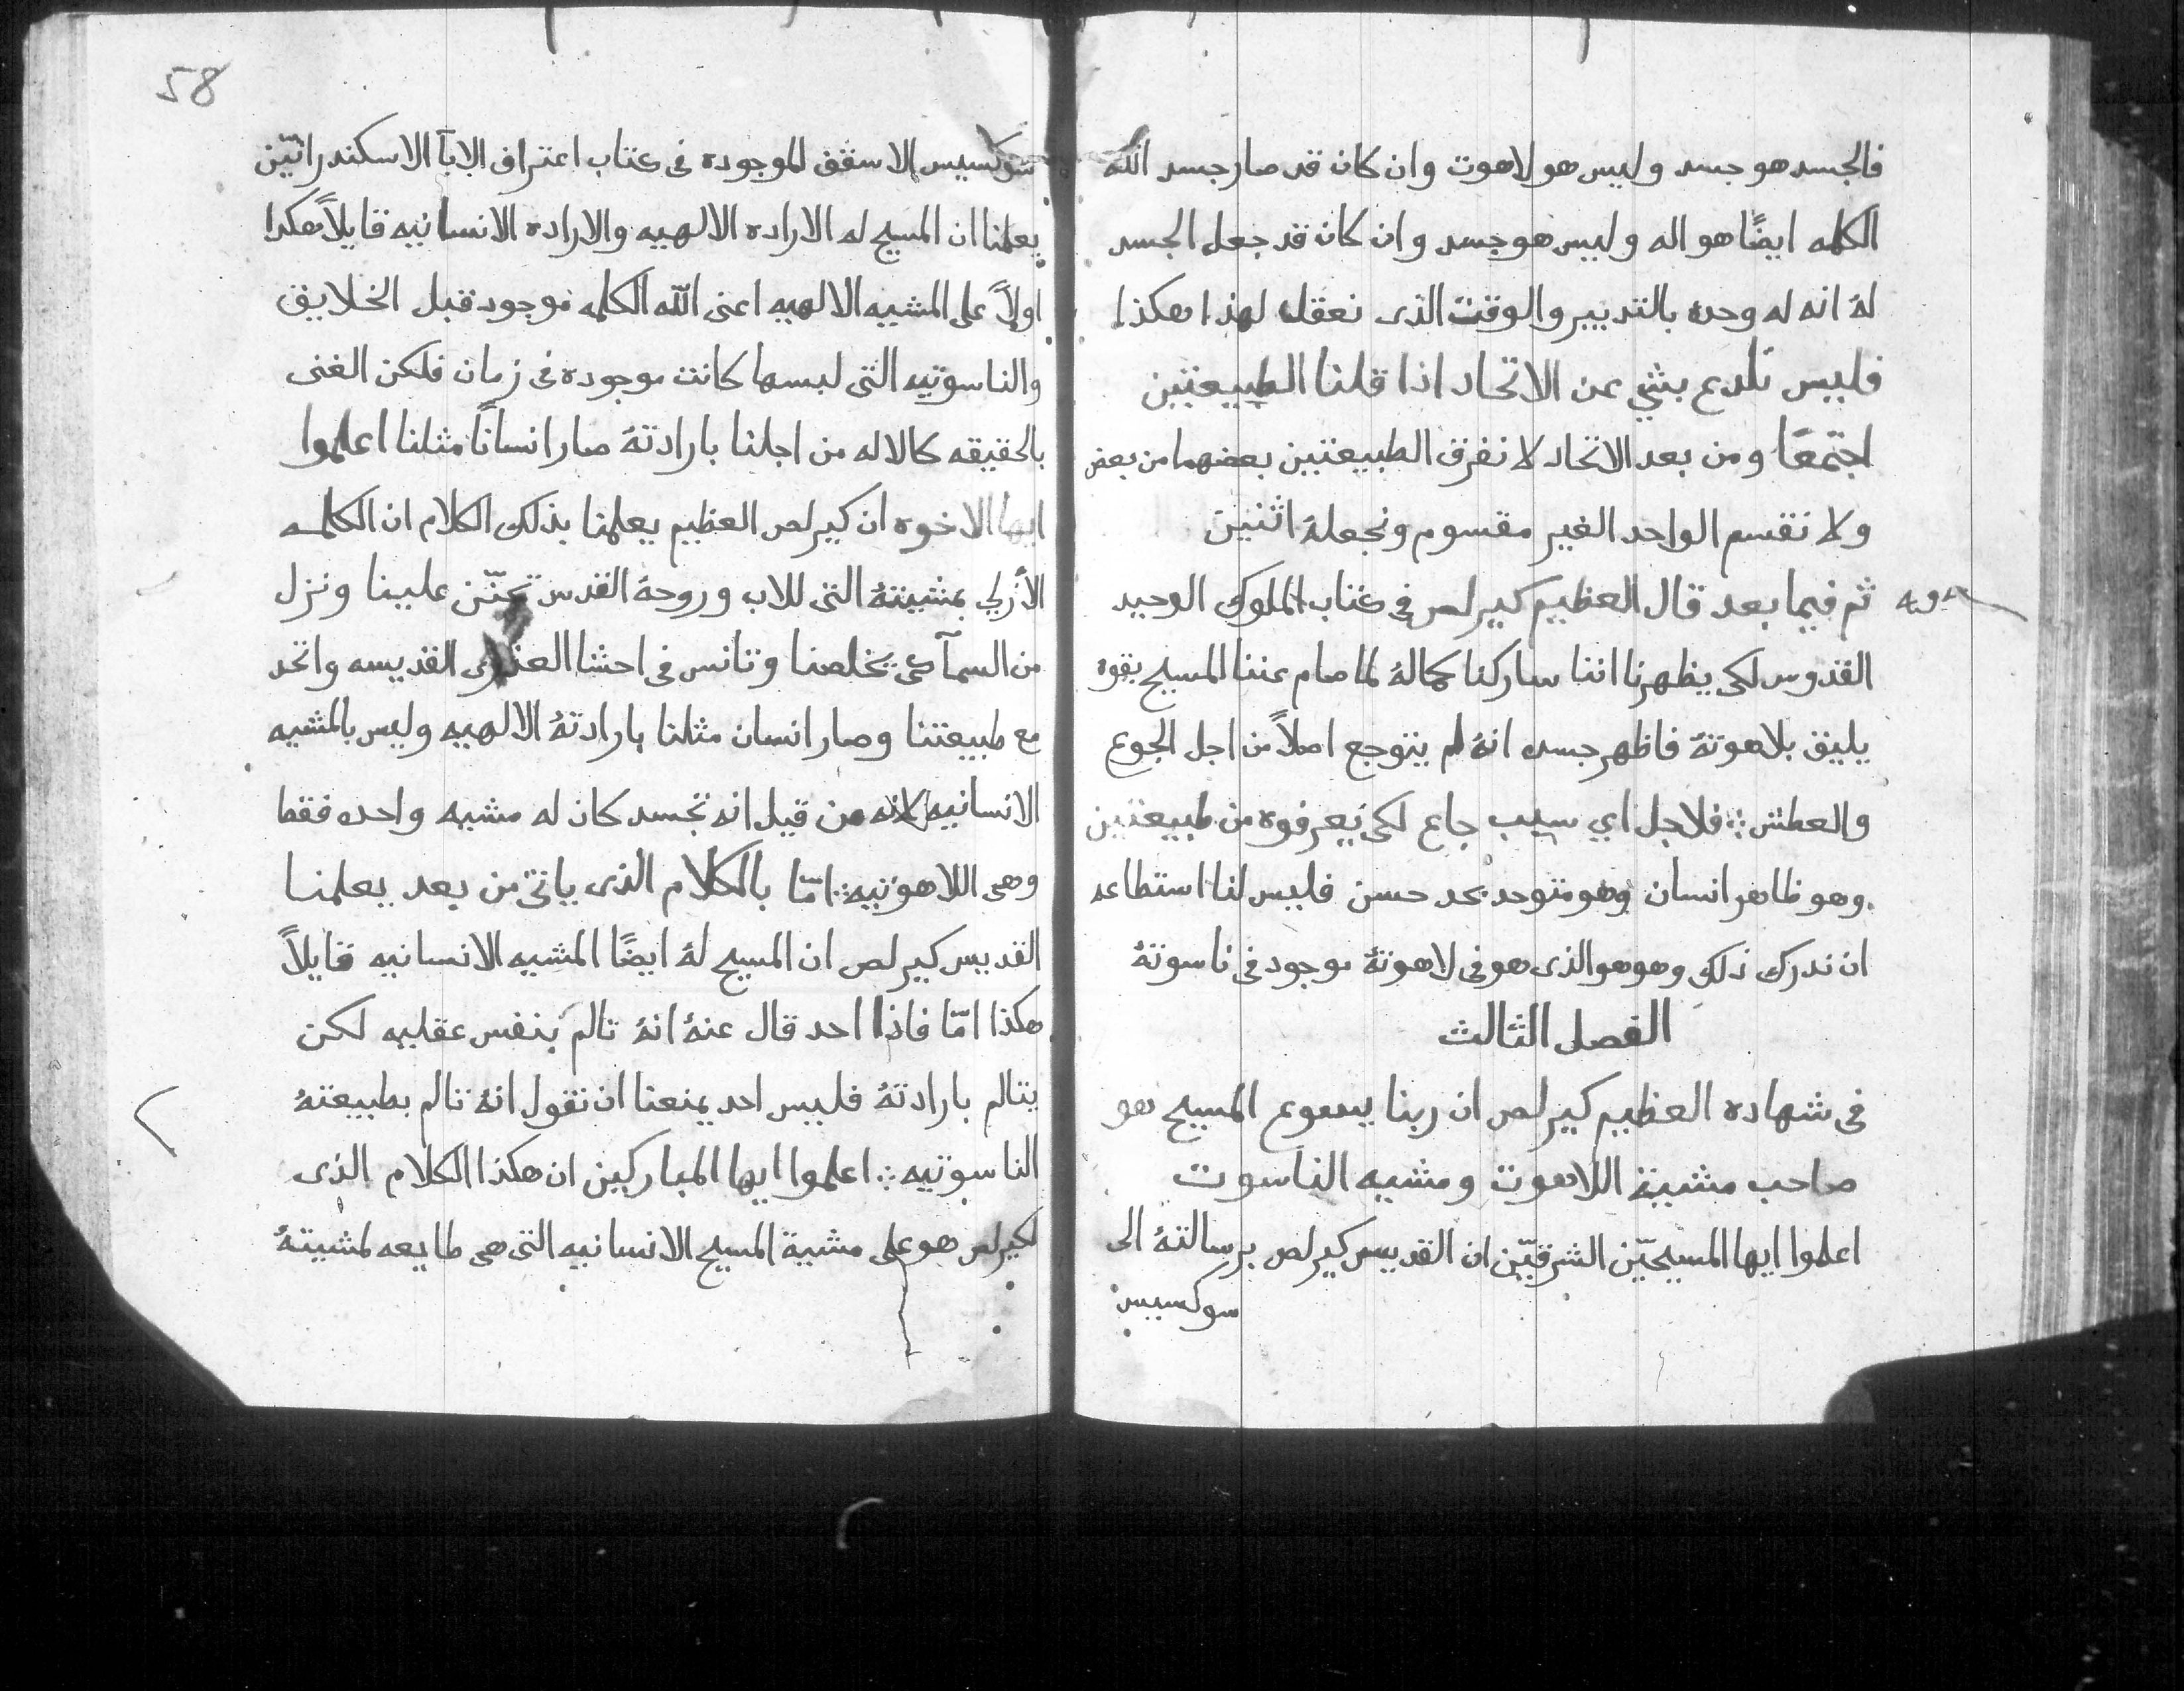 فالجسد هو جسد وليس هو لاهوت وان كان قد صار جسد الله
الكلمه ايضًا هو اله وليس هو جسد وان كان قد جعل الجسد
لهُ انه له وحده بالتدبير والوقت الذى نعقل لهذا هكذا
فليس نلدع بشي عن الاتحاد اذا قلنا الطبيعتين
اجتمعًا ومن بعد الاتحاد لا نفرق الطبيعتين بعضهما من بعض
ولا نقسم الواحد الغير مقسوم ونجعلهُ اثنين
ثم فيما بعد قال العظيم كيرلص فى كتاب الملوك الوحيد
القدوس لكى يظهرنا اننا ساركنا كمالهُ لما صام عننا المسيح بقوه
يليق بلاهوتهُ فاظهر جسده انهُ لم يتوجع اصلاً من اجل الجوع
والعطش ؛ فلاجل اي سبب جاع لكى يعرفوه من طبيعتين
وهو ظاهر انسان وهو متوحد بحد حسن فليس لنا استطاعه
ان ندرك ذلك وهو هو الذى هو فى لاهوتهُ موجود فى ناسوتهُ
الفصل الثالث
فى شهاده العظيم كيرلص ان ربنا يسوع المسيح هو
صاحب مشيية اللاهوت ومشييه الناسوت
اعلموا ايها المسيحيّن الشرقيّن ان القديس كيرلص برسالتهُ الى
سوكسيس
58
سوكسيس الاسقف الموجوده فى كتاب اعتراف الابآ الاسكندرانيّن
يعلمنا ان المسيح له الاراده الالهيه والاراده الانسانيه قايلاً هكدا
اولاً على المشييه الالهيه اعنى الله الكلمه موجود قبل الخلايق
والناسوتيه التى لبسها كانت موجوده فى زمان فلكن الغنى
بالحقيقه كالاله من اجلنا بارادتهُ صار انسانًا مثلنا اعلموا
ايها الاخوه ان كيرلص العظيم يعلمنا بذلك الكلام ان الكلمه
الأزلي بمشيتهُ التى للاب وروحهُ القدس تحنّن علينا ونزل
من السمآ كى يخلصنا وتانس فى احشا العذرى القديسه واتحد
مع طبيعتنا وصار انسان مثلنا بارادتهُ الالهيه وليس بالمشيه
الانسانيه لانه من قبل انه تجسد كان له مشيه واحده فقط
وهى اللاهوتيه ؛ امّا بالكلام الذى ياتى من بعد يعلمنا
القديس كيرلص ان المسيح لهُ ايضًا المشيه الانسانيه قايلاً
هكذا امّا فاذا احد قال عنهُ انهُ تالم بنفس عقليه لكن
يتالم بارادتهُ فليس احد يمنعنا ان نقول انهُ تالم بطبيعتهُ
الناسوتيه ؛ اعلموا ايها المباركين ان هكذا الكلام الذى
لكيرلص هو على مشية المسيح الانسانيه التى هى طايعه لمشيتهُ